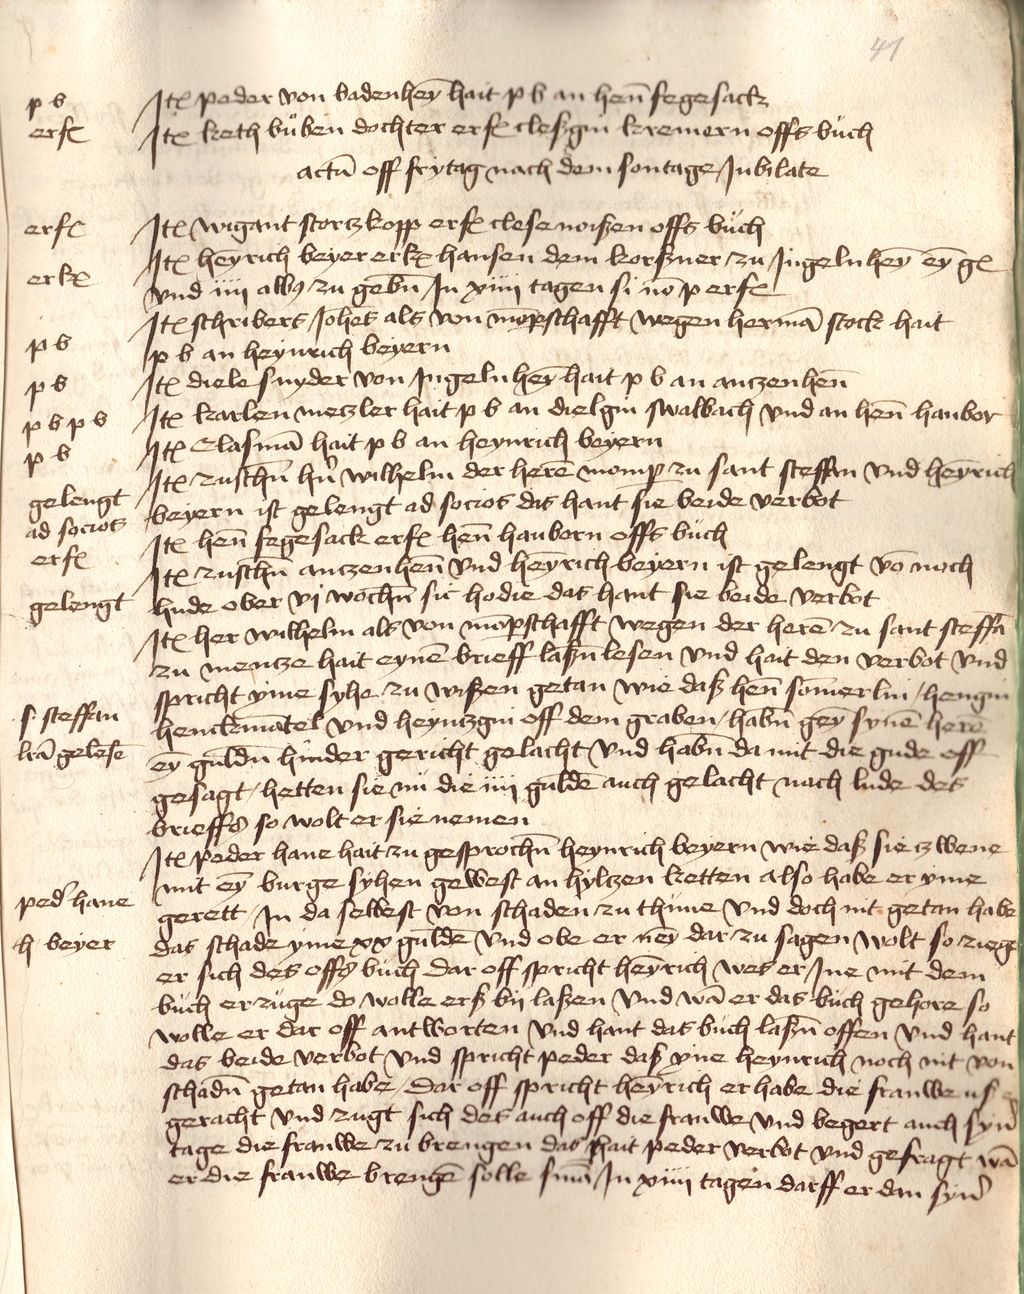 41
p b Itꝫ peder von badenheȳ hait p b an hen̄ fegesack
erfꝫ Itꝫ keth büben dochter erfꝫ cleßgin kremern offs büch
actū off frÿtag nach dem sontage Jubilate
erfꝫ Itꝫ wigant stortzkopp erfꝫ clese noißen offs büch
erkꝫ Itꝫ heȳrich beyer erkꝫ hansen dem korßner zu Ingelnheȳ eȳ gꝫ
vnd iiii albꝰ zu gebn̄ In xiiii tagen si nō p erfꝫ
Itꝫ schribers Joh̄es als von mōpschafft wegen hermā stock hait
p b p b an heynrich beyern
p b Itꝫ diele snyder von Ingelnheȳ hait p b an antzenhen̄
p b p b Itꝫ karlen metzler hait p b an dielgin swalbach vnd an hen̄ haubor
p b Itꝫ Clasmā hait p b an heynrich beyern
Itꝫ zuschn̄ hr̄n wilhelm der herē momp̄ zu sant steffan vnd heȳrich
gelengt ad socios beyern ist gelengt ad socios das hant sie beide verbot
erfꝫ Itꝫ hen̄ fegesack erfꝫ hen̄ hauborn offs büch
Itꝫ zuschn̄ antzenhen̄ vnd heȳrich beyern ist gelengt vō noch
gelengt hude ober vi wochn̄ sic hodie das hant sie beide verbot
Itꝫ her wilhelm als von mōpschafft wegen der herē zu sant steffā
zu mentze hait eynē brieff laßn̄ lesen vnd hait den verbot vnd
spricht yme syhe zu wißen getan wie daß hen̄ som̄erlin / hengin
s. steffan henckmātel vnd heyntzgin off dem graben / habn̄ geȳ synē herē
lr̄a gelesē eȳ guldn̄ hinder gericht gelacht vnd habn̄ da mit die gude off
gesagt / hetten sie nü die iiii guldē auch gelacht nach lude des
brieffꝭ so wolt er sie nemen
Itꝫ peder hane hait zu gesprochn̄ heynrich beyern wie daß sie tzwene
mit eȳ burge syhen gewest an hyltzen ketten also habe er yme
ped' hane gerett / In da selbest von schaden zu thüne vnd doch nit getan habe
h beyer das schade yme xx guldē vnd obe er neȳ dar zu sagen wolt so ziege
er sich des offꝭ büch dar off spricht heȳrich wes er Ine mit dem
büch erzüge do wolle erß bij laßen vnd wā er das büch gehore so
wolle er dar off antworten vnd hant das büch laßn̄ offen vnd hant
das beide verbot vnd spricht peder daß yne heynrich noch nit von
schadn̄ getan habe / Dar off spricht heȳrich er habe die frauwe uß
geracht vnd zugt sich des auch off die frauwe vnd begert auch syn'
tage die frauwe zu brengen das hait peder verbot vnd gefragt wā
er die frauwe brengē solle sm̄a In xiiii tagen darff er dan syn'